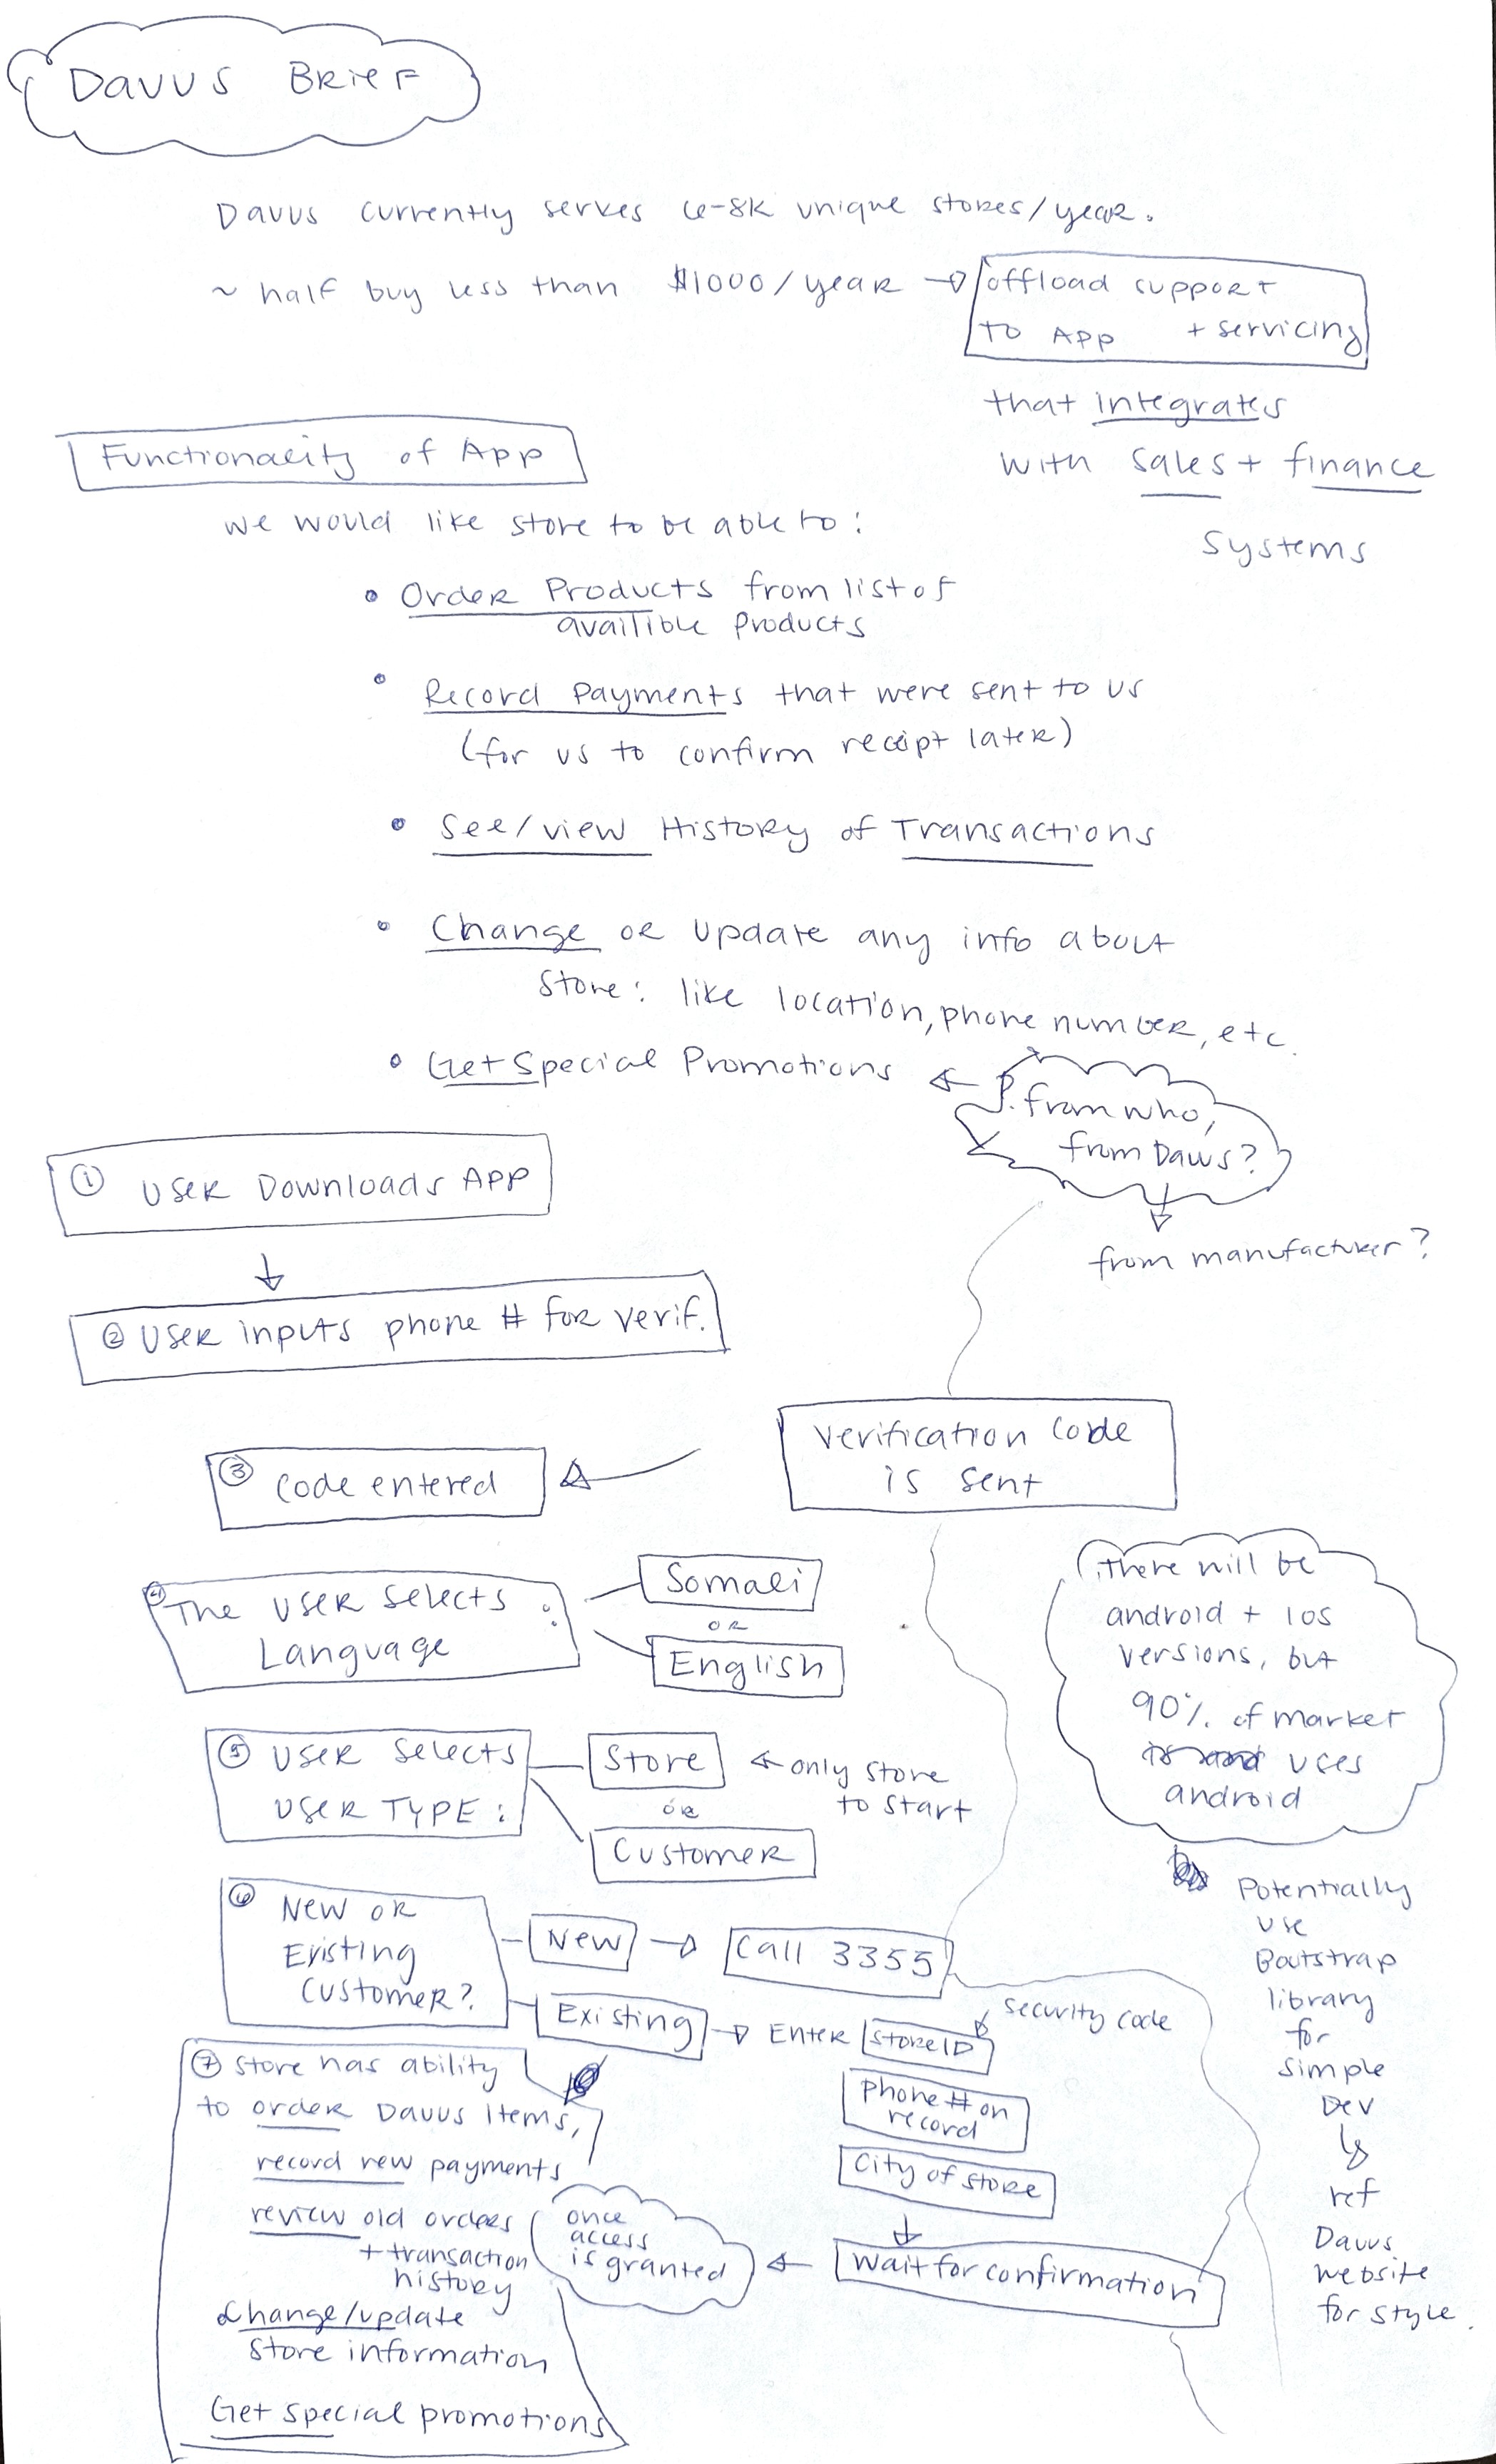 Davus Brief
Davus currently serves 6-8k unique stores/year.
~ half buy less than $1000/year → offload support
to App + servicing
that integrates
with sales + finance
systems
Functionality of App
we would like store to be able to:
• Order Products from list of
availible products
• Record payments that were sent to us
(for us to confirm receipt later)
• See/view History of Transactions
• Change or update any info about
store: like location, phone number, etc.
• Get Special Promotions ←
?. from who,
from Davus?
from manufacturer?
① User Downloads App
② User inputs phone # for verif.
Verification code
is sent
③ Code entered
④ The user selects :
Language
Somali
or
English
⑤ User selects
user type:
Store ← only store
to start
or
Customer
there will be
android + ios
versions, but
90% of market
uses
android
Potentially
use
Bootstrap
library
for
simple
Dev
ref
Davus
website
for style.
⑥ New or
Existing
customer?
New → Call 3355
Existing → Enter store ID
security code
phone # on
record
City of store
Wait for confirmation
once
access
is granted
⑦ Store has ability
to order Davus items,
record new payments
review old orders
+ transaction
history
Change/update
store information
Get special promotions